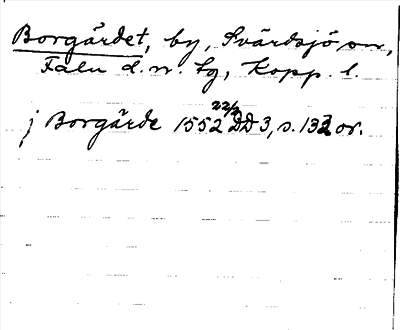 Borgärdet, by, Svärdsjö sn,
Falu d. n. tg, Kopp. l.
j Borgärde 1552 22/2 DD 3, s. 132 or.